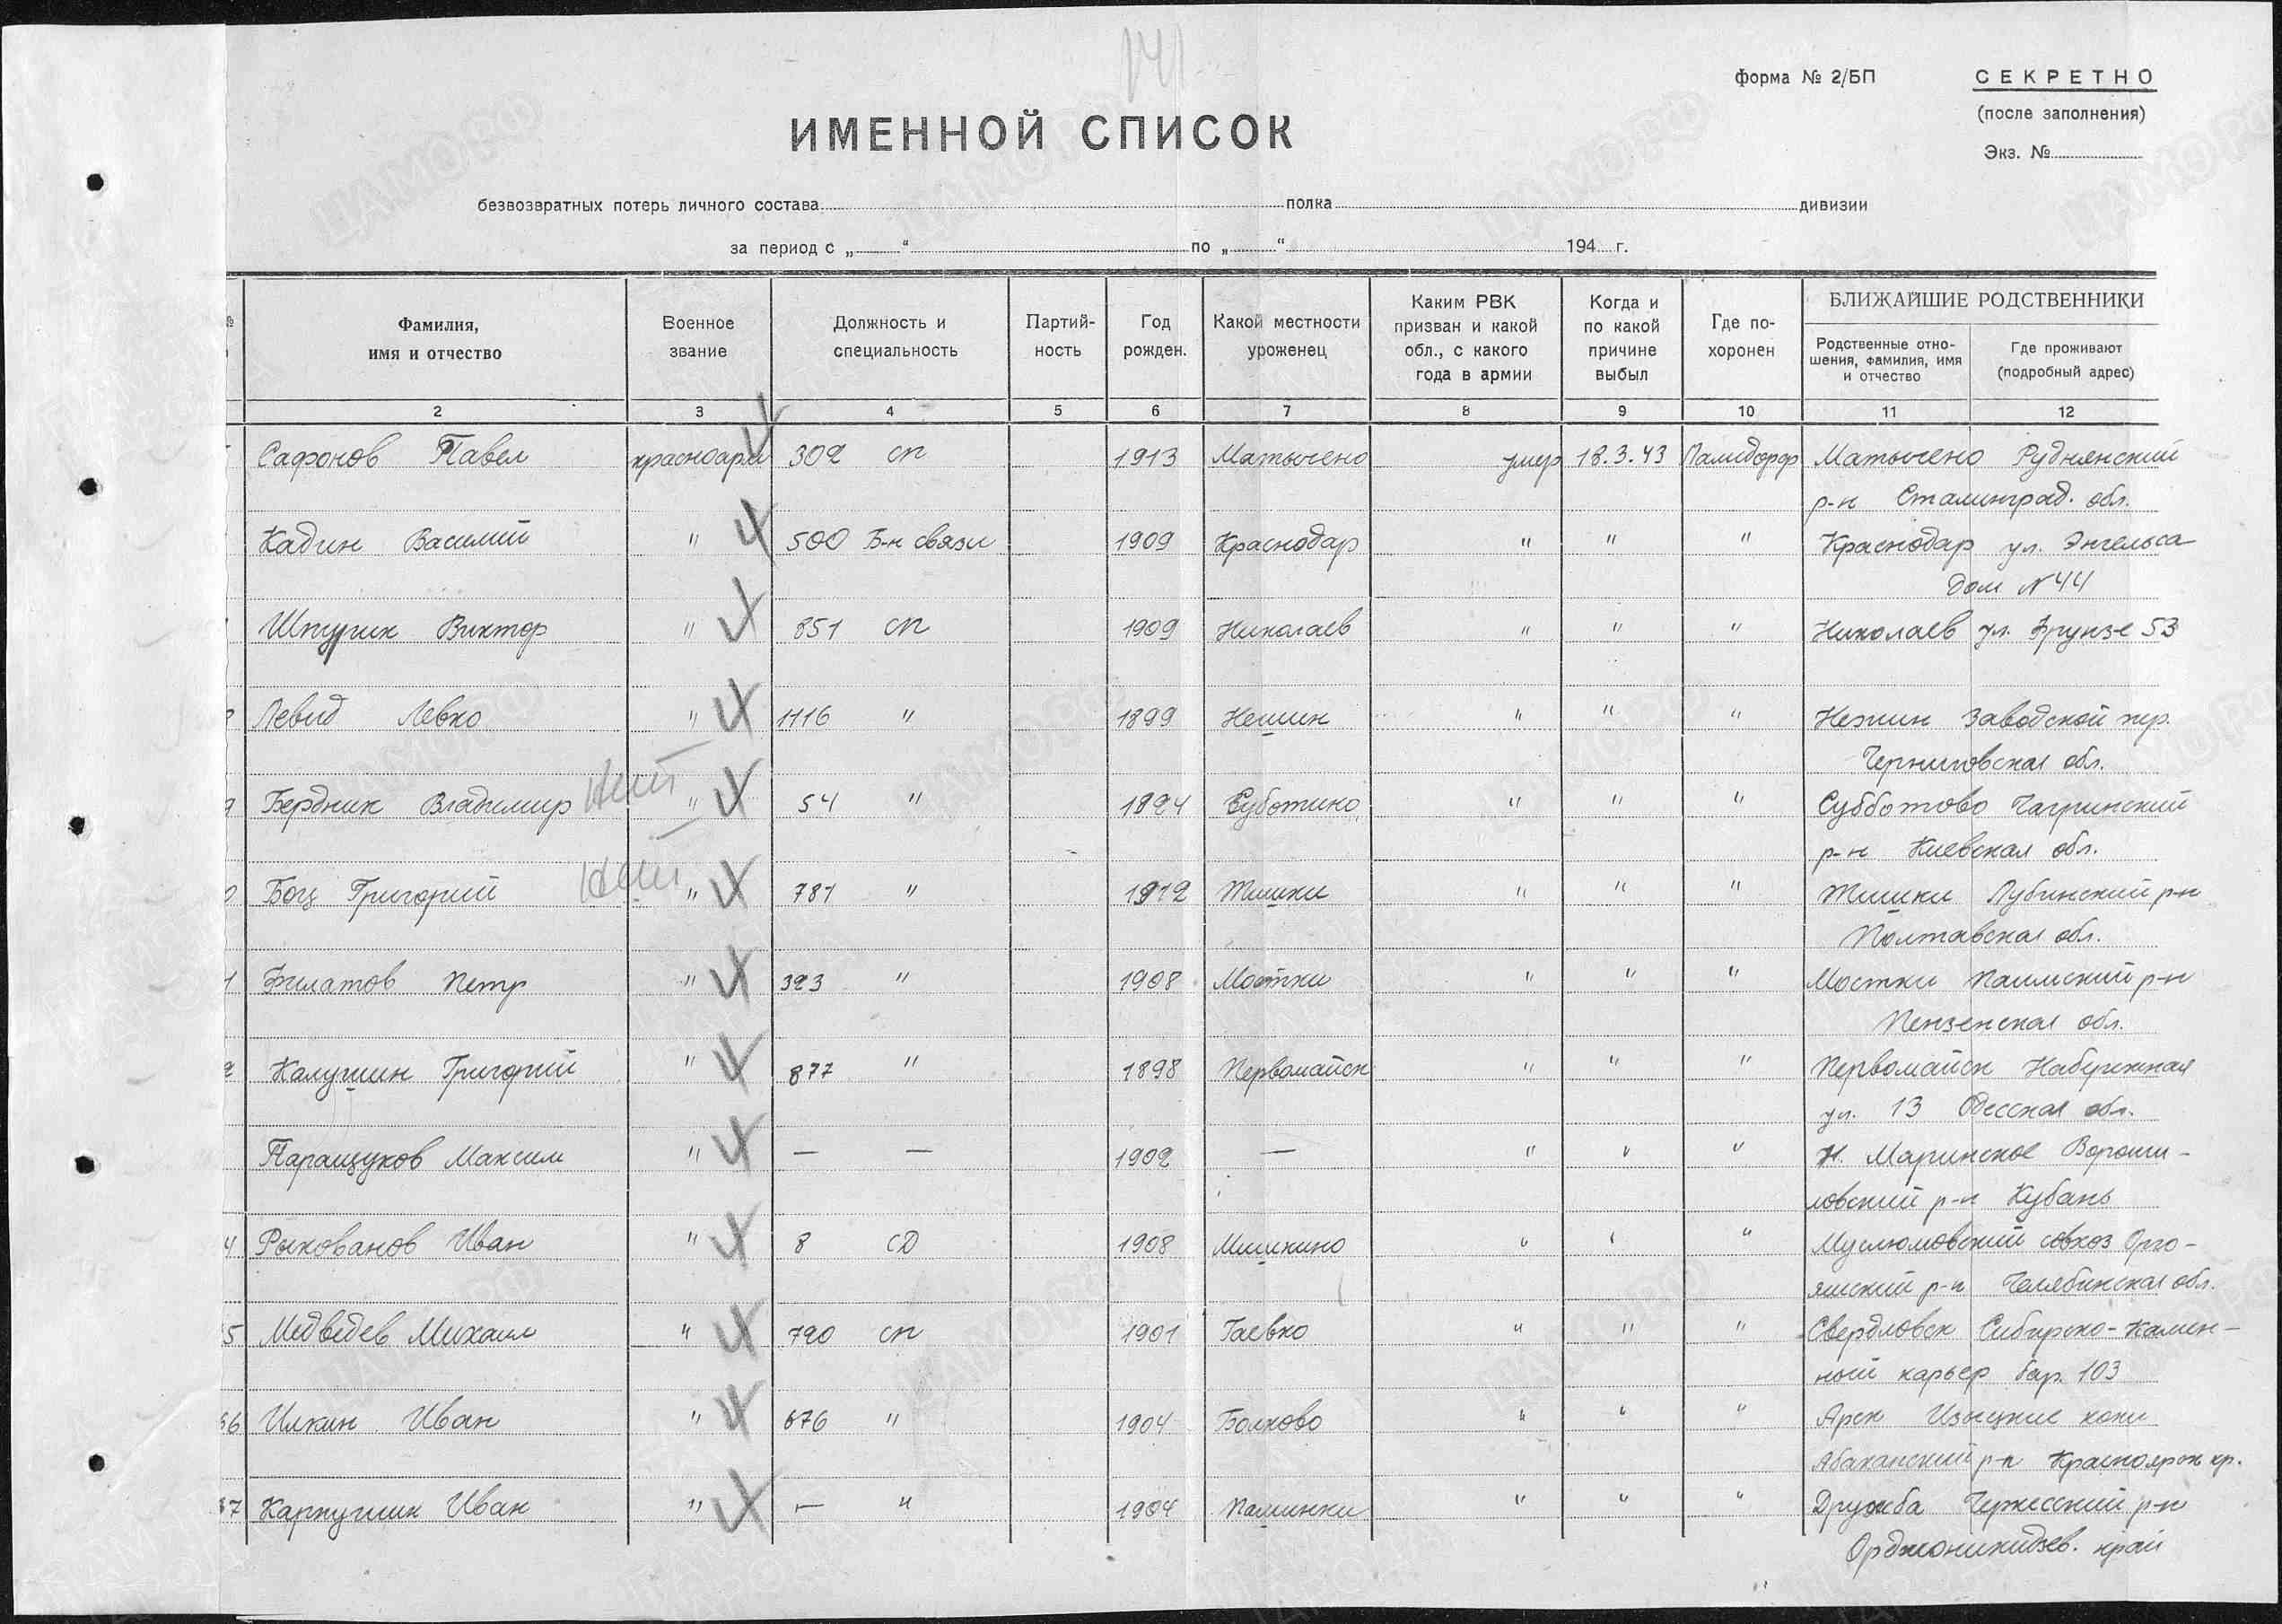 141
форма № 2/БП
СЕКРЕТНО
(после заполнения)
Экз. №
ИМЕННОЙ СПИСОК
безвозвратных потерь личного состава полка дивизии
за период с „ “ по „ “ 194 г.
№ Фамилия, имя и отчество Военное звание Должность и специальность Партий-ность Год рожден. Какой местности уроженец Каким РВК призван и какой обл., с какого года в армии Когда и по какой причине выбыл Где по-хоронен БЛИЖАЙШИЕ РОДСТВЕННИКИ
Родственные отно-шения, фамилия, имя и отчество Где проживают (подробный адрес)
2 3 4 5 6 7 8 9 10 11 12
Сафонов Павел красноарм 302 сп 1913 Матычено умер 18.3.43 Полидороф Матычено Руднянский
р-н Сталинград. обл.
Кадин Василий " 500 Б-н связи 1909 Краснодар " " " Краснодар ул. Энгельса
Дом № 44
Шпурик Виктор " 851 сп 1909 Николаев " " " Николаев ул. Фрунзе 53
Левид Левко " 1116 " 1899 Нешин " " " Нежин Заводской пер.
Черниговская обл.
Бердник Владимир " 54 " 1894 Суботино " " " Субботово Чагринский
р-н Киевская обл.
Боц Григорий " 781 " 1912 Тишки " " " Тишки Лубинский р-н
Полтавская обл.
1 Филатов Петр " 393 " 1908 Мостки " " " Мостки Паимский р-н
Пензенская обл.
2 Калушин Григорий " 877 " 1898 Первомайск " " " Первомайск Набережная
ул. 13 Одесская обл.
Паращуков Максим " — — 1902 — " " " Н. Маринское Вороши-
ловский р-н Кубань
4 Рыкованов Иван " 8 СД 1908 Мишкино " " " Муслюмовский совхоз Арго-
яшский р-н Челябинская обл.
5 Медведев Михаил " 790 сп 1901 Гаевко " " " Свердловск Сибирско-Камен-
ный карьер бар. 103
66 Илкин Иван " 676 " 1904 Болхово " " " Арск
Абаканский р-н Красноярск кр.
67 Карпушин Иван " — " 1904 " " " Дружба Черкесский р-н
Орджоникидзев. край